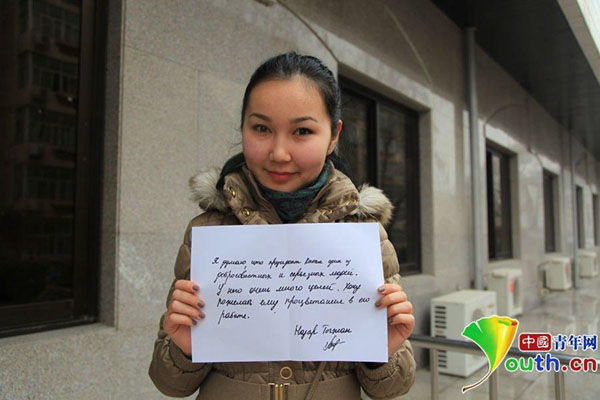 Я думаю что президент Китая один из
добросовестных и серьезных людей.
У него очень много целей. Хочу
пожелать ему процветания в его
работе.
Назар
中國青年网
Youth.cn